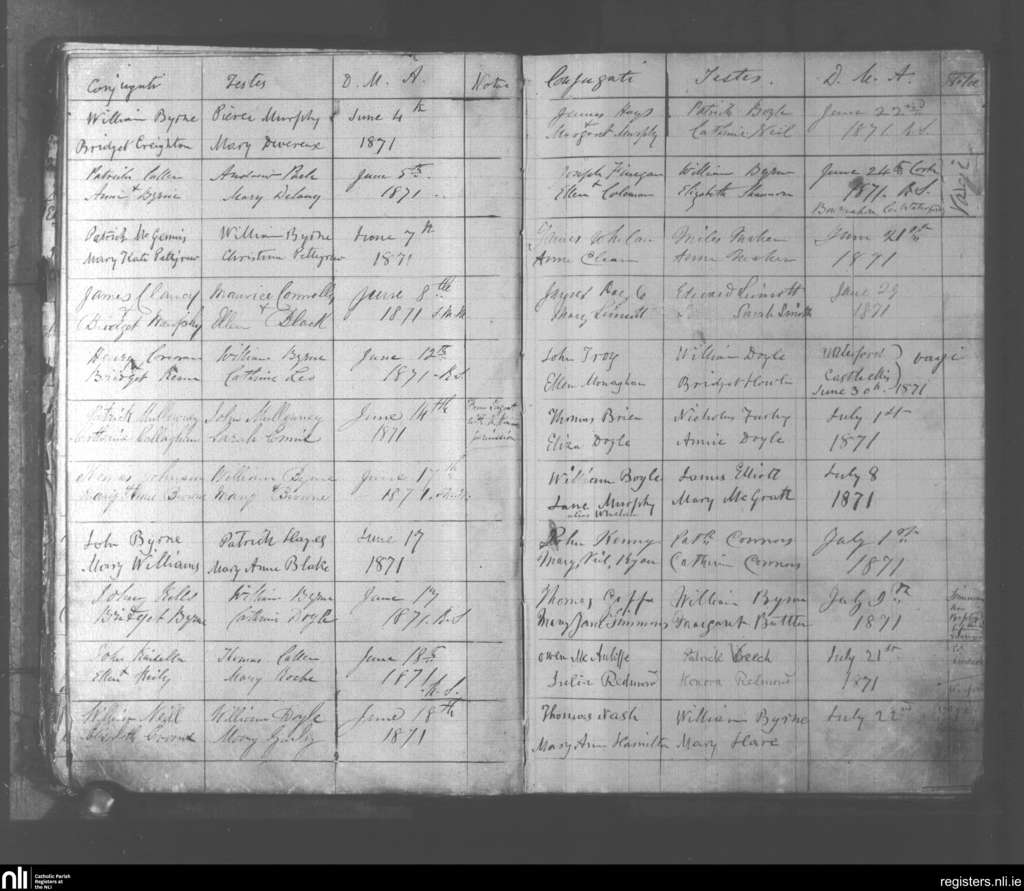 Conjugati Testes D. M. A. Notae
William Byrne Pierce Murphy June 4th
Bridget Creighton Mary Devereux 1871
Patrick Cullen Andrew June 5th
Anne Byrne Mary Delany 1871
Patrick McGennis William Byrne June 7th
Mary Kate Pettigrew Christina Pettigrew 1871
James Clancy Maurice Connolly June 8th
Bridget Murphy Ellen Black 1871
Henry William Byrne June 12th
Bridget Catherine Leo 1871 R.S.
Patrick Mullowney John Mullowney June 14th
Catherine Callaghan Sarah 1871
Johnson William Byrne June 17th
Mary Anne Browne Mary Browne 1871
John Byrne Patrick Hayes June 17
Mary Williams Mary Anne Blake 1871
William Byrne June 17
Bridget Byrne Catherine Doyle 1871. R.S.
John Thomas Cullen June 18th
Ellen Mary Roche 1871
R. S.
William Neill William Doyle June 18th
Mary 1871
Conjugati Testes. D. M. A. Notae
James Hays Patrick Boyle June 22nd
Margaret Murphy Catherine Neil 1871 R.S.
Joseph Finegan William Byrne June 24th Cork
Ellen Coloman Elizabeth Shannon 1871. R.S.
Co. Waterford
James Whelan Miles Meehan June 21st
Anne Anne Meehan 1871
Jasper Roe Edward Sinnott June 29
Mary Sinnott Sarah Sinnott 1871
John Troy William Doyle Waterford
Ellen Monaghan Bridget Howlin Castle ellis vagi
June 30th 1871
Thomas Brien Nicholas Furley July 1st
Eliza Doyle Annie Doyle 1871
William Boyle James Elliott July 8
Jane Murphy Mary McGrath 1871
alias Whelan
John Kenny Patk Connors July 1st
Mary Neil, Ryan Catherine Connors 1871
Thomas William Byrne July 9th
Mary Jane Simmons Margaret Butler 1871
Owen McAuliffe Patrick July 21st
Julia Redmond Honora Redmond 1871
Thomas Nash William Byrne July 22nd
Mary Ann Hamilton Mary Hare
nli
Catholic Parish
Registers at
the NLI
registers.nli.ie